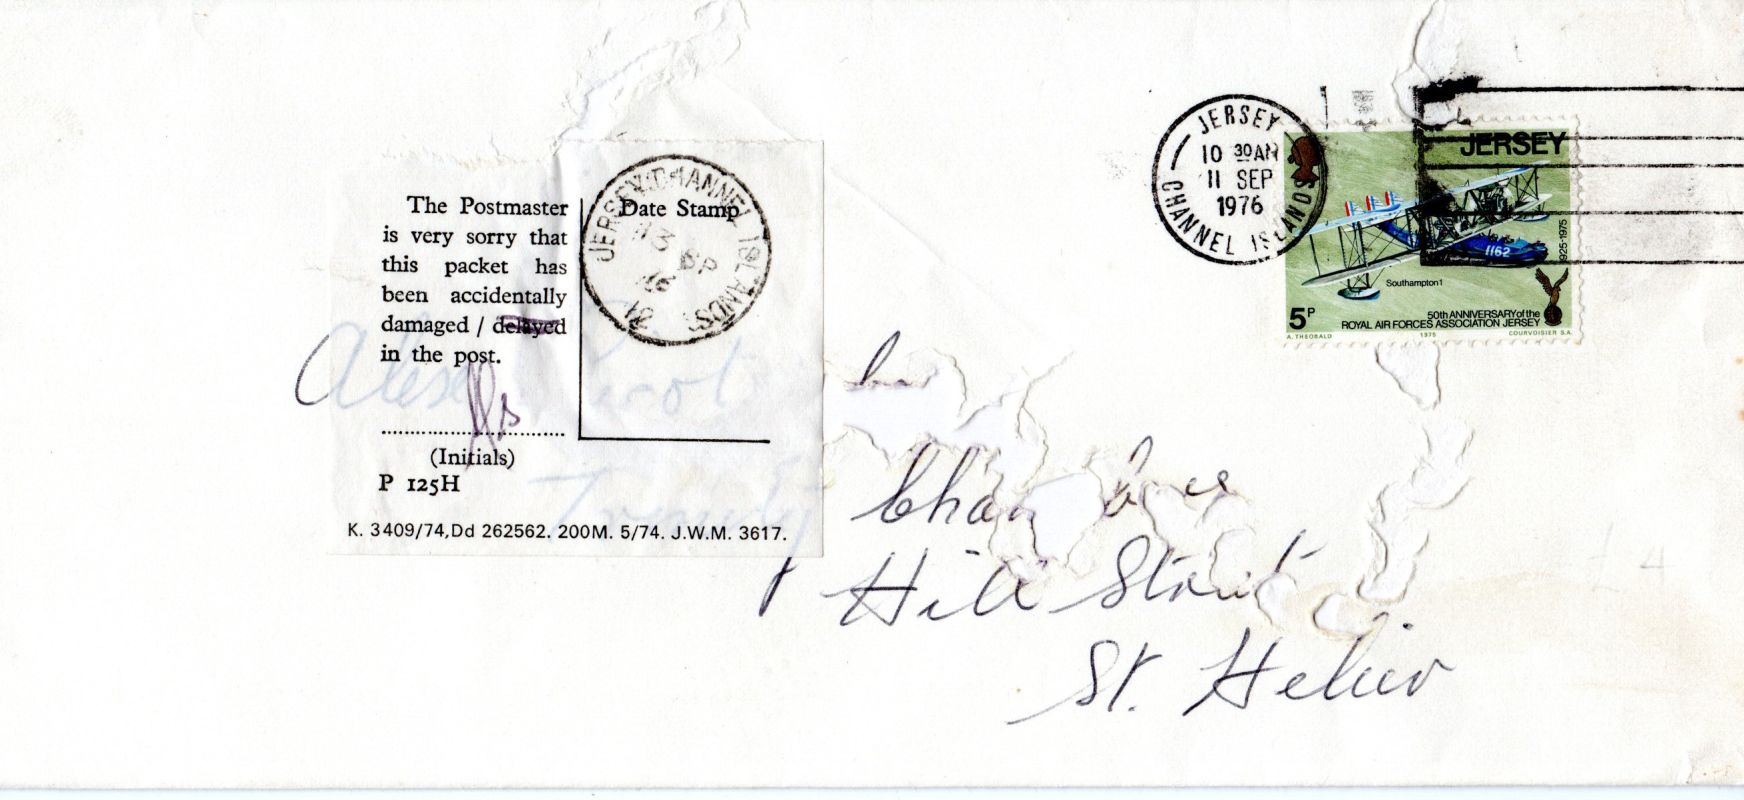 The Postmaster
is very sorry that
this packet has
been accidentally
damaged / delayed
in the post.
(Initials)
P 125H
K. 3409/74,Dd 262562. 200M. 5/74. J.W.M. 3617.
Date Stamp
JERSEY CHANNEL ISLANDS
JERSEY
10 30AM
11 SEP
1976
CHANNEL ISLANDS
JERSEY
1162
1925-1975
Southampton 1
5P
50th ANNIVERSARY of the
ROYAL AIR FORCES ASSOCIATION JERSEY
A. THEOBALD 1975 COURVOISIER S.A.
Hill Street
St. Helier